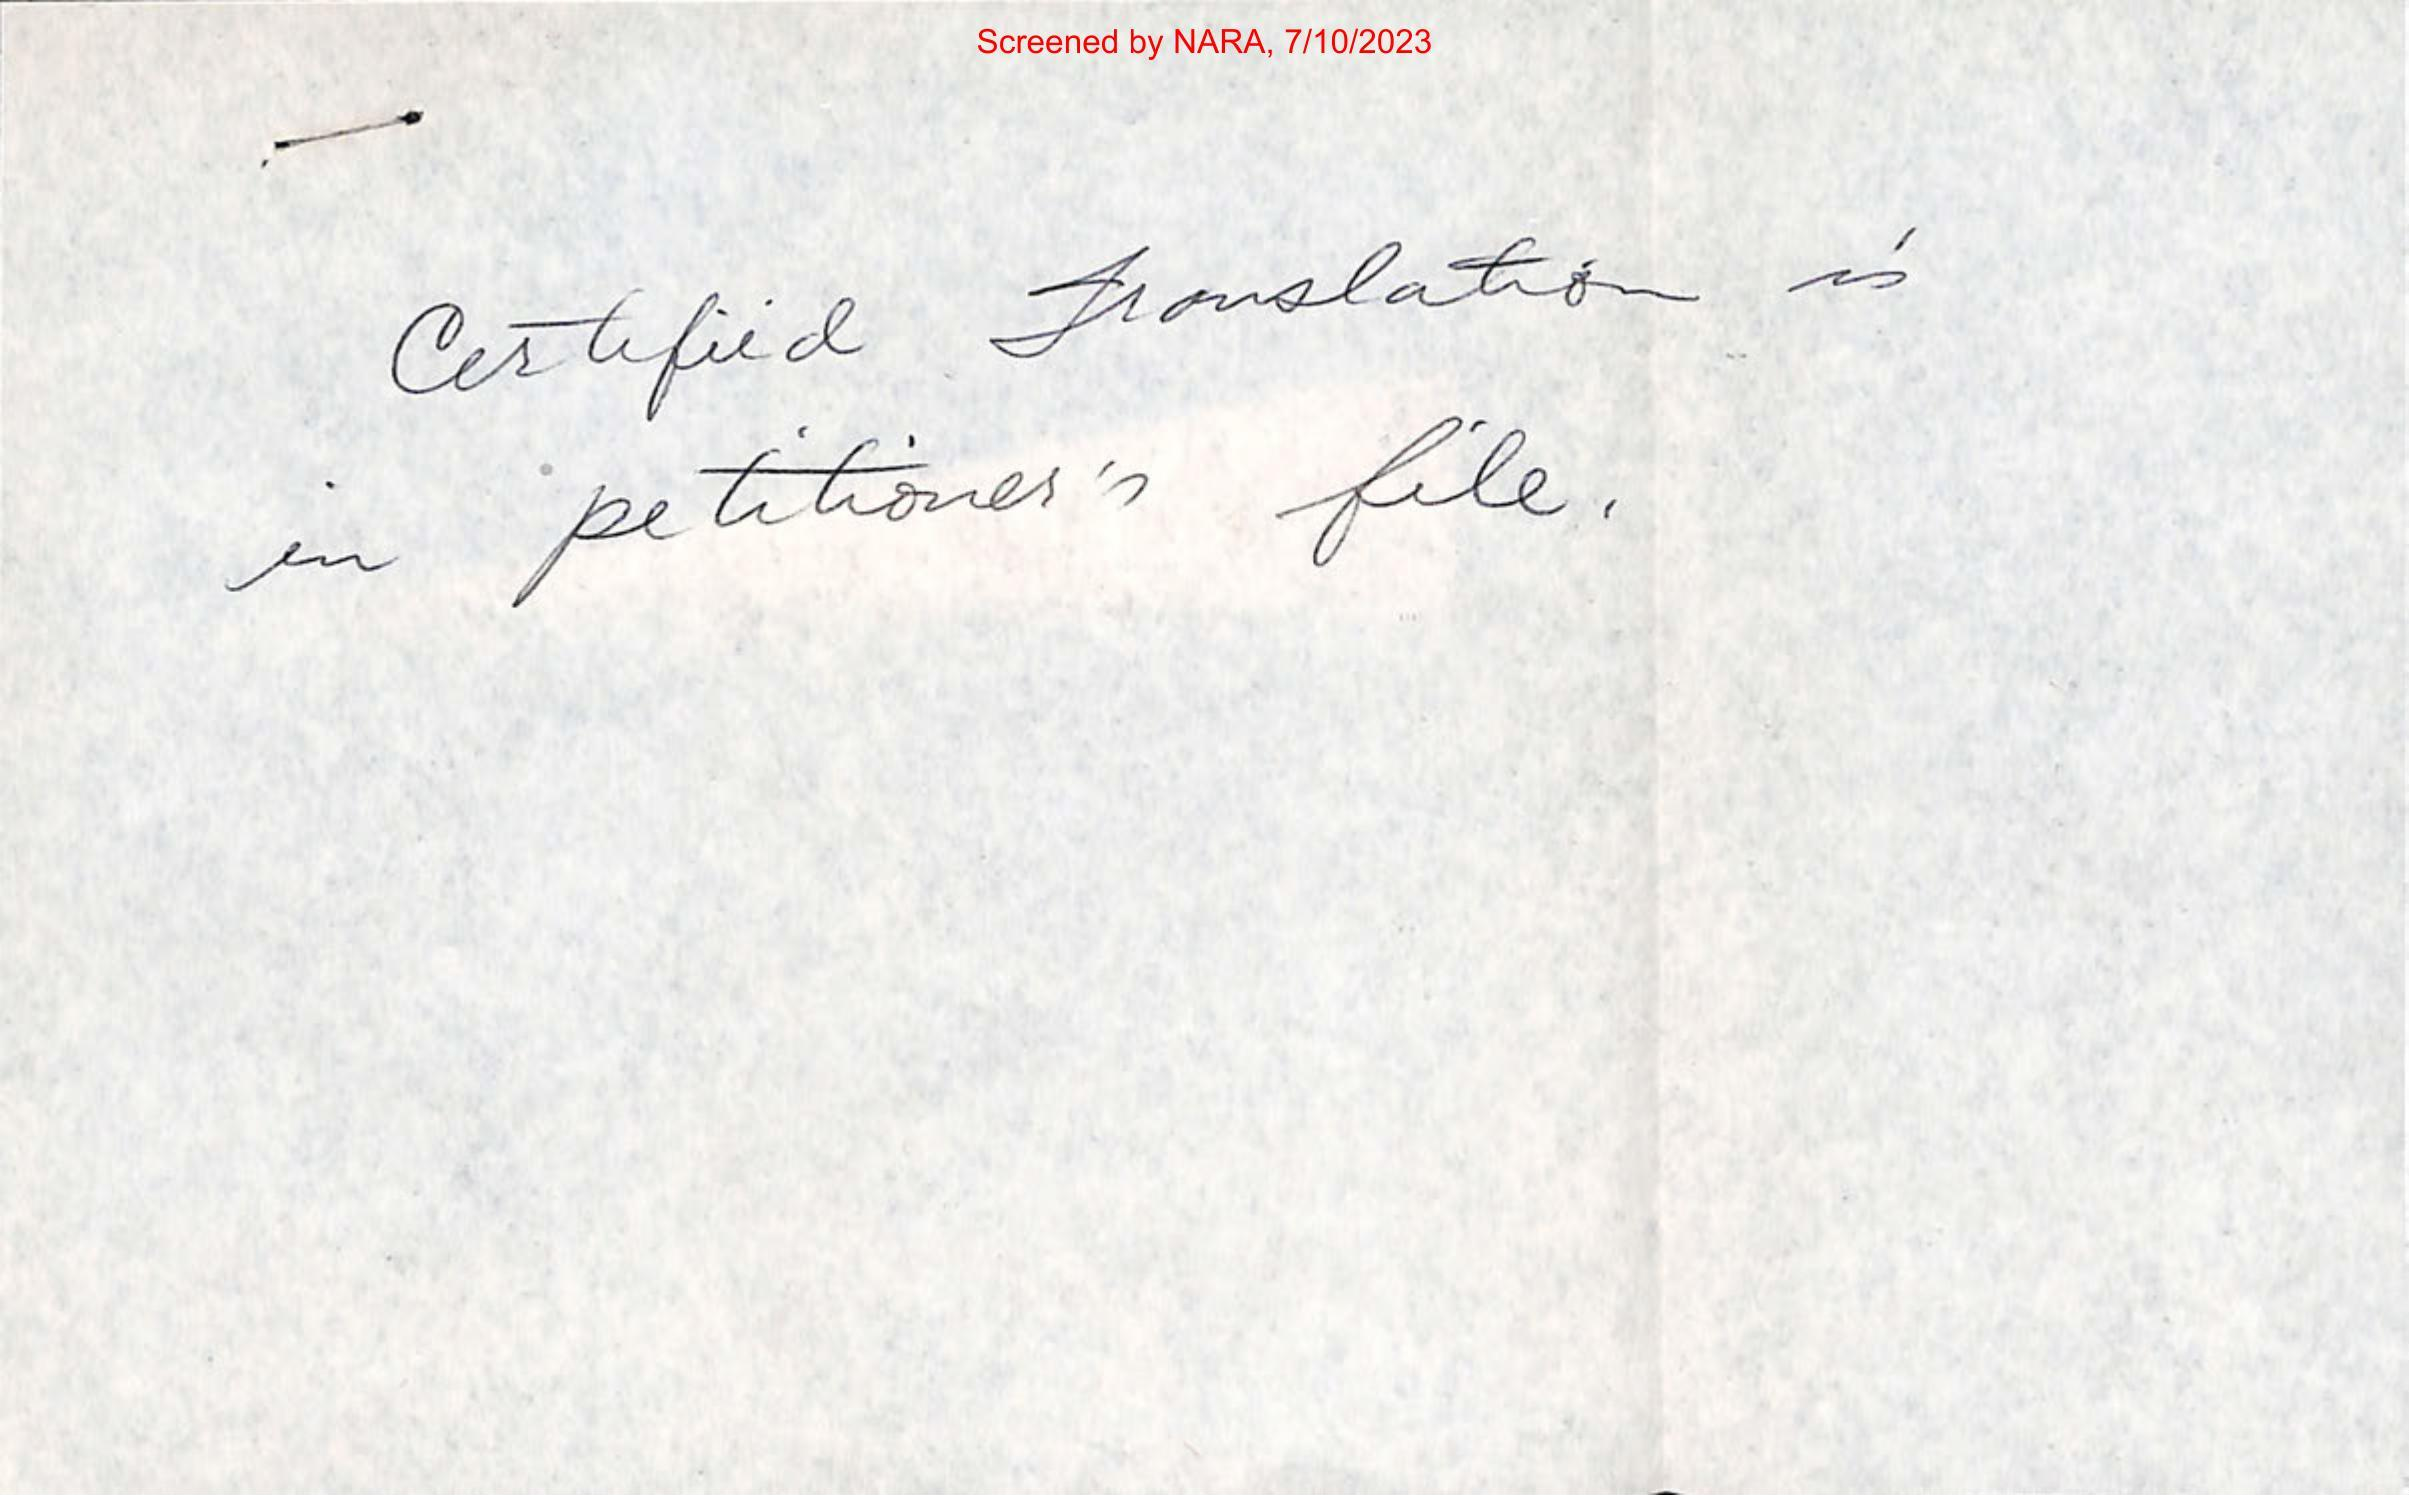 Screened by NARA, 7/10/2023
Certified Translation is
in petitioner's file.